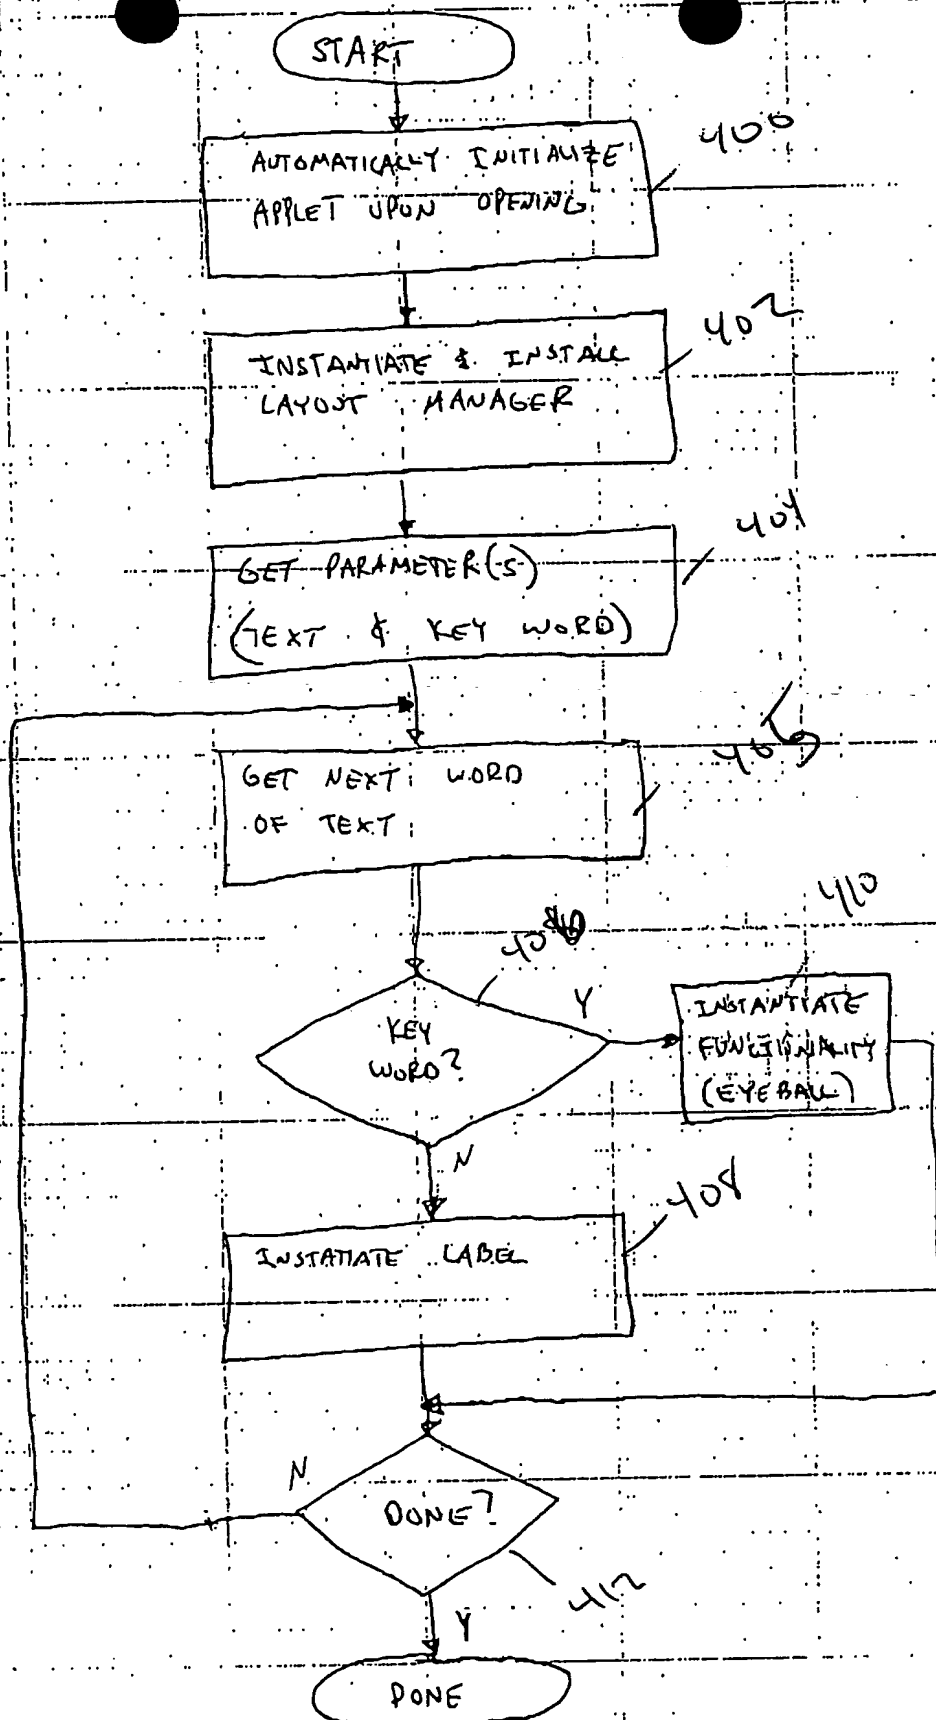 START
400
AUTOMATICALLY INITIALIZE
APPLET UPON OPENING
402
INSTANTIATE & INSTALL
LAYOUT MANAGER
404
GET PARAMETER(S)
(TEXT & KEY WORD)
406
GET NEXT WORD
OF TEXT
410
Y
KEY
WORD?
INSTANTIATE
FUNCTIONALITY
(EYEBALL)
N
408
INSTATIATE LABEL
N
DONE?
412
Y
DONE